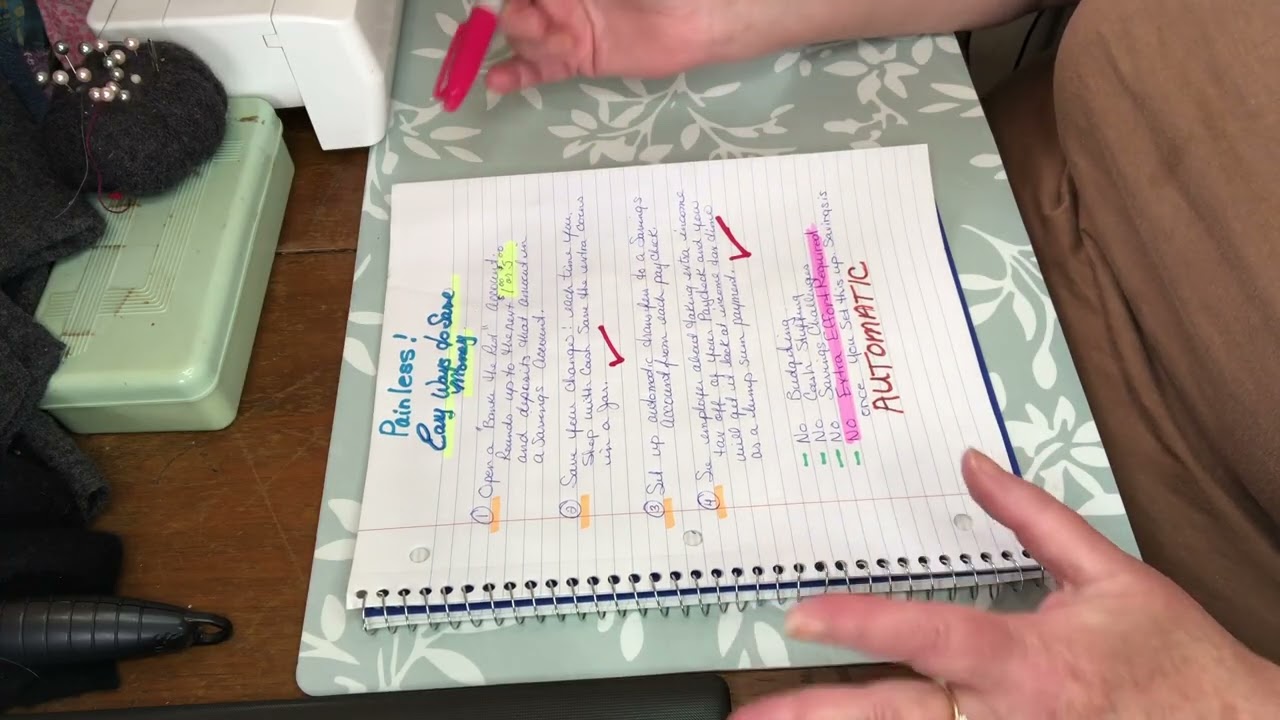 Painless!
Easy Ways to Save
Money
① Open a "Bank the Rest" account.
Rounds up to the next $1.00 or $5.00
and deposits that amount in
a Savings Account.
② Save your change! each time you
Shop with Cash Save the extra coins
in a Jar.
③ Set up automatic transfers to a Savings
Account from each paycheck
④ See employer about taking extra income
tax off of your Paycheck and you
will get it back at income tax time
as a lump sum payment.
- No Budgeting
- No Cash Stuffing
- No Savings Challenges
- No Extra Effort Required
No once you Set this up - Savings is
AUTOMATIC